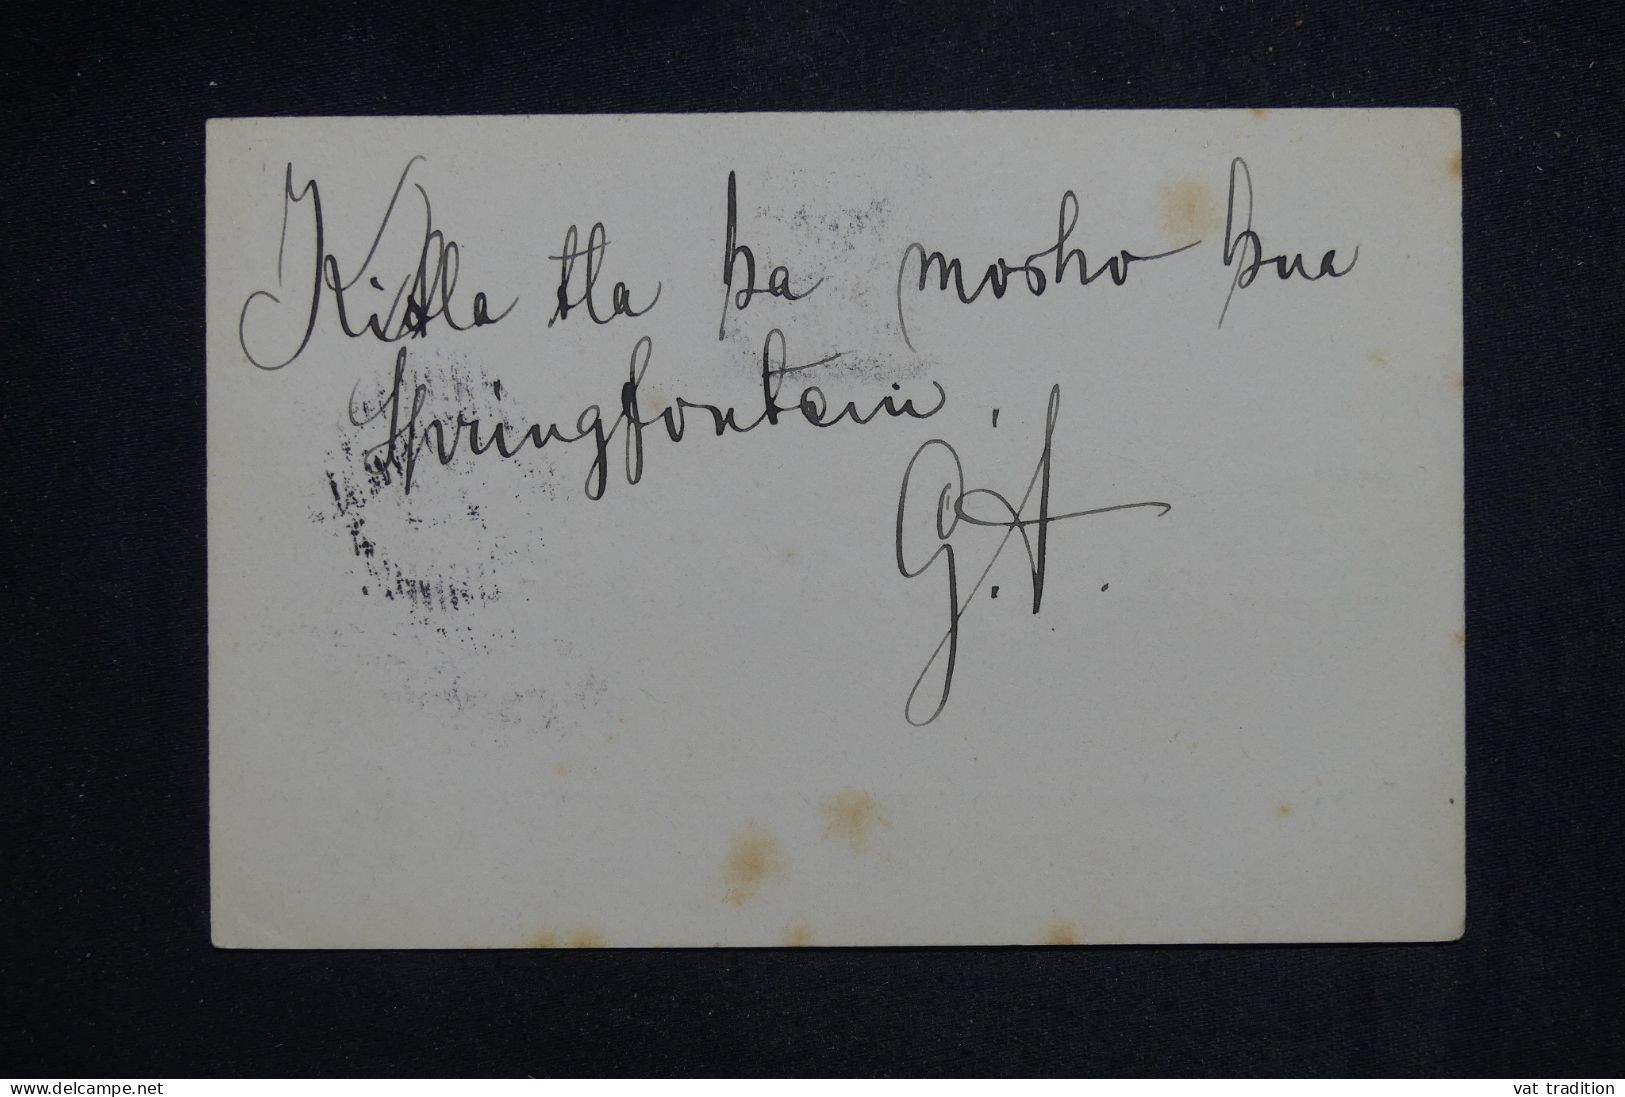 Kitla tla ka mosho kua
Springfontein.
G.A.
www.delcampe.net
vat tradition